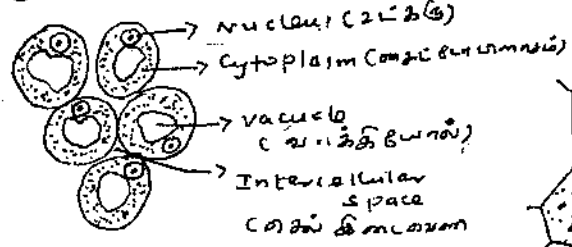 Nucleus (உட்கரு)
Cytoplasm (சைட்டோபிளாசம்)
vacuole
(வாக்கியோல்)
Intercellular
space
(செல் இடைவெளி